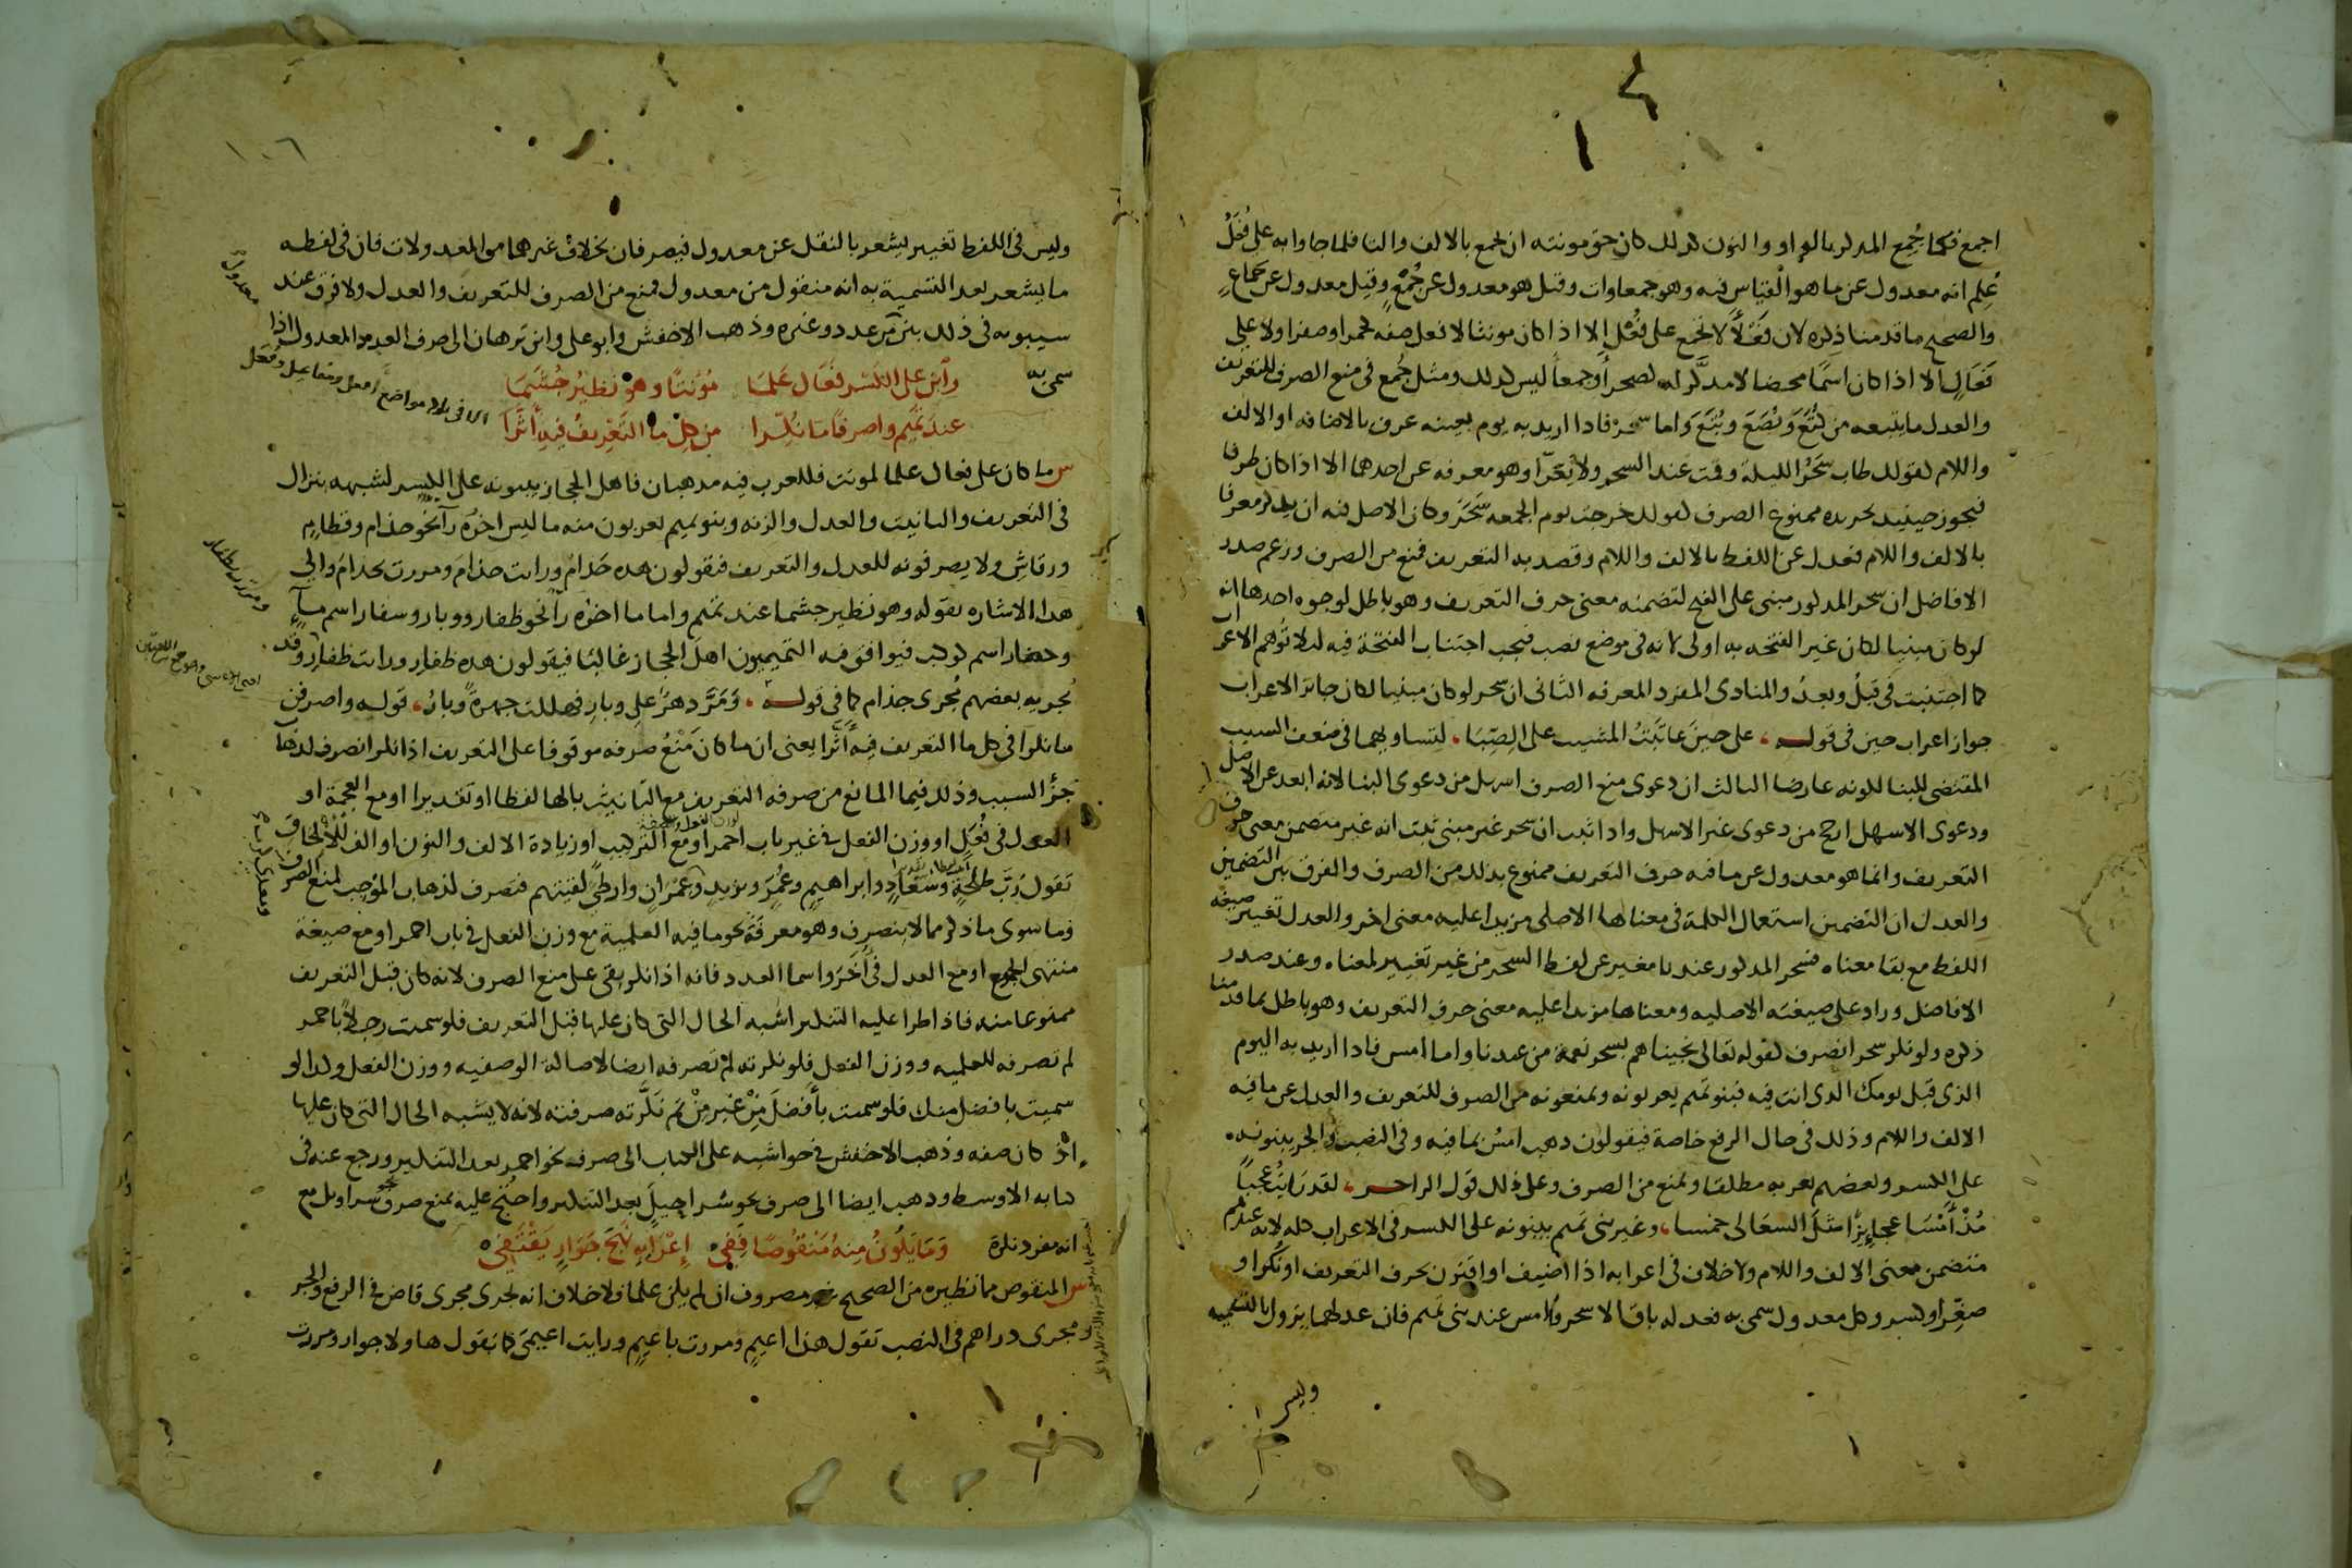 اجمع فكما جُمِع المذكر بالواو والنون كذلك كان حق مونثه ان يجمع بالالف والتا فلما جاوا به على فُعَلْ
عُلِم انه معدول عن ما هو القياس فيه وهو جمعاوات وقيل هو معدول عن جُمْعٍ وقيل معدول عن جَمَاعٍ
والصحيح ما قدمنا ذكره لان فَعْلَا لا تجمع على فُعْل الا اذا كان مونثا لافعل صفه كحمرا وصفرا ولا على
فَعَالٍ الا اذا كان اسمًا محضا لا مذكر له كصحرا وجمعا ليس كذلك ومثل جُمع في منع الصرف للتعريف
والعدل ما يتبعه من كُتَعَ وبُصَعَ وبُتَعَ واما سحر فاذا اريد به يوم بعينه عرف بالاضافه او الالف
واللام كقولك طاب سَحَرُ الليلة وقمت عند السحر ولا يَعْرَا وهو معرفه عن احدهما الا اذا كان ظرفا
فيجوز حينيذ تجريده ممنوع الصرف كقولك خرجت يوم الجمعه سَحَرَ وكان الاصل فيه ان يذكر معرفا
بالالف واللام فعدل عن اللفظ بالالف واللام وقصد به التعريف فمنع من الصرف وزعم صدر
الافاضل ان سحر المذكور مبنى على الفتح لتضمنه معنى حرف التعريف وهو باطل لوجوه احدها انه
لو كان مبنيا لكان غير الفتحه به اولى لانه في موضع نصب فيجب اجتناب الفتحة فيه ليلا تُوهِم الاعراب
كما اجتنبت في قبلُ وبعدُ والمنادى المفرد المعرفه الثانى ان سحر لو كان مبنيا لكان جائز الاعراب
جواز اعراب حين في قوله، على حينَ عاتبْتُ المشيب على الصِّبَا، لتساويهما في ضعف السبب
المقتضى للبنا لكونه عارضا الثالث ان دعوى منع الصرف اسهل من دعوى البنا لانه ابعد عن الاصل
ودعوى الاسهل ارجح من دعوى غير الاسهل واذا ثبت ان سحر غير مبنى ثبت انه غير متضمن معنى حرف
التعريف وانما هو معدول عن ما فيه حرف التعريف ممنوع بذلك من الصرف والفرق بين التضمين
والعدل ان التضمين استعمال الكلمة في معناها الاصلى مزيدا عليه معنى اخر والعدل تغيير صيغة
اللفظ مع بقا معناه فسحر المذكور عندنا مغير عن لفظ السحر من غير تغيير لمعناه وعند صدر
الافاضل وارد على صيغته الاصليه ومعناها مزيدا عليه معنى حرف التعريف وهو باطل بما قدمنا
ذكره ولو نكر سحر انصرف كقوله تعالى نجيناهم بسحر نعمة من عندنا واما امس فاذا اريد به اليوم
الذى قبل يومك الذى انت فيه فبنو تميم يعربونه ويمنعونه من الصرف للتعريف والعدل عن ما فيه
الالف واللام وذلك في حال الرفع خاصة فيقولون ذهب امسُ بما فيه وفي النصب والجر يبنونه
على الكسر وبعضهم يعربه مطلقا ويمنع من الصرف وعلى ذلك قول الراجز، لقد رايتُ عجبًا
مُذْ أَمْسَا عجايزًا مثلَ السعَالى خمسا، وغير بنى تميم يبنونه على الكسر في الاعراب كله لانه عندهم
متضمن معنى الالف واللام ولا خلاف في اعرابه اذا اضيف او اقترن بحرف التعريف او نُكِّر او
صغِّر او كسر وكل معدول سمى به فعدله باق الا سحر وامس عند بنى تميم فان عدلهما يزول بالتسميه
وليس
١٠٦
وليس في اللفظ تغيير يشعر بالنقل عن معدول فيصرفان بخلاف غيرهما من المعدولات فان في لفظه
ما يشعر بعد التسمية به انه منقول من معدول فمنع من الصرف للتعريف والعدل ولا فرق عند
سيبويه في ذلك بين عدد وغيره وذهب الاخفش وابو على وابن برهان الى صرف العدد المعدول اذا
سمى به
وَابْنِ على الكَسْرِ فَعَالِ عَلَمَا مُؤَنثًا وهوَ نَظيرُ جُشَمَا
عندَ تَمِيم واصرفًا مَا نُكِّرا من كلِّ ما التَّعْريفُ فيهِ أَثَّرا
س ما كان على فعال علما لمونث فللعرب فيه مذهبان فاهل الحجاز يبنونه على الكسر لشبهه بنزال
في التعريف والتانيث والعدل والزنه وبنو تميم يعربون منه ما ليس اخرُه رآ نحو حذام وقطام
ورقاش ولا يصرفونه للعدل والتعريف فيقولون هذه حَذامُ ورايت حذامَ ومررت بحذامَ والى
هذا الاشاره بقوله وهو نظير جشما عند تميم واما ما اخرُه رآ نحو ظفار ووبار وسفار اسم مآ
وحضار اسم كوكب فيوافق فيه التميميون اهل الحجاز غالبًا فيقولون هذه ظفارِ ورايت ظفارِ وقد
يُجريه بعضهم مُجرى حذام كما في قوله، وَمَرَّ دهرٌ على وبارِ فهلكت جهرةً وبارُ، قوله واصرفن
ما نكرا في كل ما التعريف فيه أَثَّرا يعنى ان ما كان مَنْعُ صرفه موقوفا على التعريف اذا نكر انصرف لذهاب
جزؤ السبب وذلك فيما المانع من صرفه التعريف مع التانيث بالها لفظا او تقديرا او مع العجمة او
العدل في فُعَل او وزن الفعل في غير باب احمر او مع التركيب او زيادة الالف والنون او الف للالحاق
تقول رُبَّ طلحةٍ وسُعَادٍ وابراهيمٍ وعُمَرٍ ويزيدٍ وعِمْرانٍ وارطًى لقيتهم فتصرف لذهاب الموجب لمنع الصرف
وما سوى ما ذكر مما لا ينصرف وهو معرفة نحو ما فيه العلمية مع وزن الفعل في باب احمر او مع صيغة
منتهى الجموع او مع العدل في أُخَرَ واسما العدد فانه اذا نكر بقى على منع الصرف لانه كان قبل التعريف
ممنوعا منه فاذا طرا عليه التنكير اشبه الحال التى كان عليها قبل التعريف فلو سميت رجلًا باحمر
لم تصرفه للعلميه ووزن الفعل فلو نكرته لم تصرفه ايضا لاصالة الوصفيه ووزن الفعل وكذا لو
سميت بافضل منك فلو سميت بأفضلَ مِنْ غيرِ مِنْ ثم نكَّرته صرفته لانه لا يشبه الحال التى كان عليها
اذْ كان صفه وذهب الاخفش في حواشيه على الكتاب الى صرف نحو احمر بعد التنكير ورجع عنه في
كتابه الاوسط وذهب ايضا الى صرف نحو شراحيلَ بعد التنكير واحتُج عليه بمنع صرف سراويل مع
انه مفرد نكرة وَمَا يَكُونُ مِنهُ مَنْقُوصًا فَفِي إِعْرَابِهِ نَهْجَ جَوَارٍ يَقْتَفِي
س المنقوص مما نظيره من الصحيح غير مصروف ان لم يكن علما فلا خلاف انه يجرى مجرى قاض في الرفع والجر
ومجرى دراهم في النصب تقول هذا اعيمٍ ومررت باعيمٍ ورايت اعيمىَ كما تقول هاولا جوار ومررت